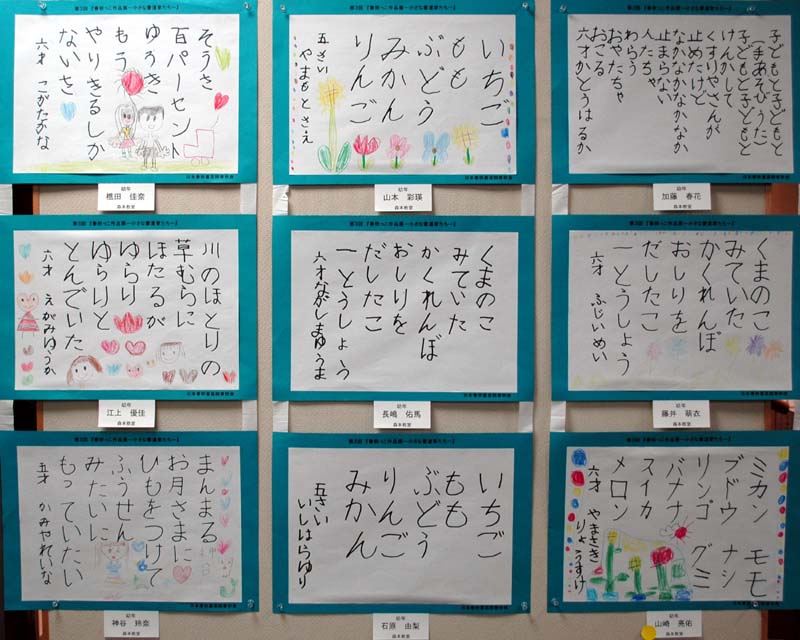 そうさ
百パーセント
ゆうき
もう
やりきるしか
ないさ
六才
こがたかな
幼年
佳奈
森本教室
いちご
もも
ぶどう
みかん
りんご
五さい
やまもとさえ
幼年
山本 彩瑛
森本教室
子どもと子どもと
(手あそびうた)
子どもと子どもと
けんかして
くすりやさんが
止めたけど
なかなかなかなか
止まらない
人たちゃ
わらう
おやたちゃ
おこる
六才かとうはるか
幼年
加藤 春花
森本教室
川のほとりの
草むらに
ほたるが
ゆらり
ゆらりと
とんでいた
六才 えがみゆうか
幼年
江上 優佳
森本教室
くまのこ
みていた
かくれんぼ
おしりを
だしたこ
一とうしょう
六才ながしまゆうま
幼年
長嶋 佑馬
森本教室
くまのこ
みていた
かくれんぼ
おしりを
だしたこ
一とうしょう
六才 ふじいめい
幼年
藤井 萌衣
森本教室
まんまる
お月さまに
ひもをつけて
ふうせん
みたいに
もっていたい
五才 かみやれいな
幼年
神谷 玲奈
森本教室
いちご
もも
ぶどう
りんご
みかん
五さい
いしはらゆり
幼年
石原 由梨
森本教室
ミカン モモ
ブドウ ナシ
リンゴ グミ
バナナ
スイカ
メロン
六才 やまさき
りょうすけ
幼年
山崎 亮佑
森本教室